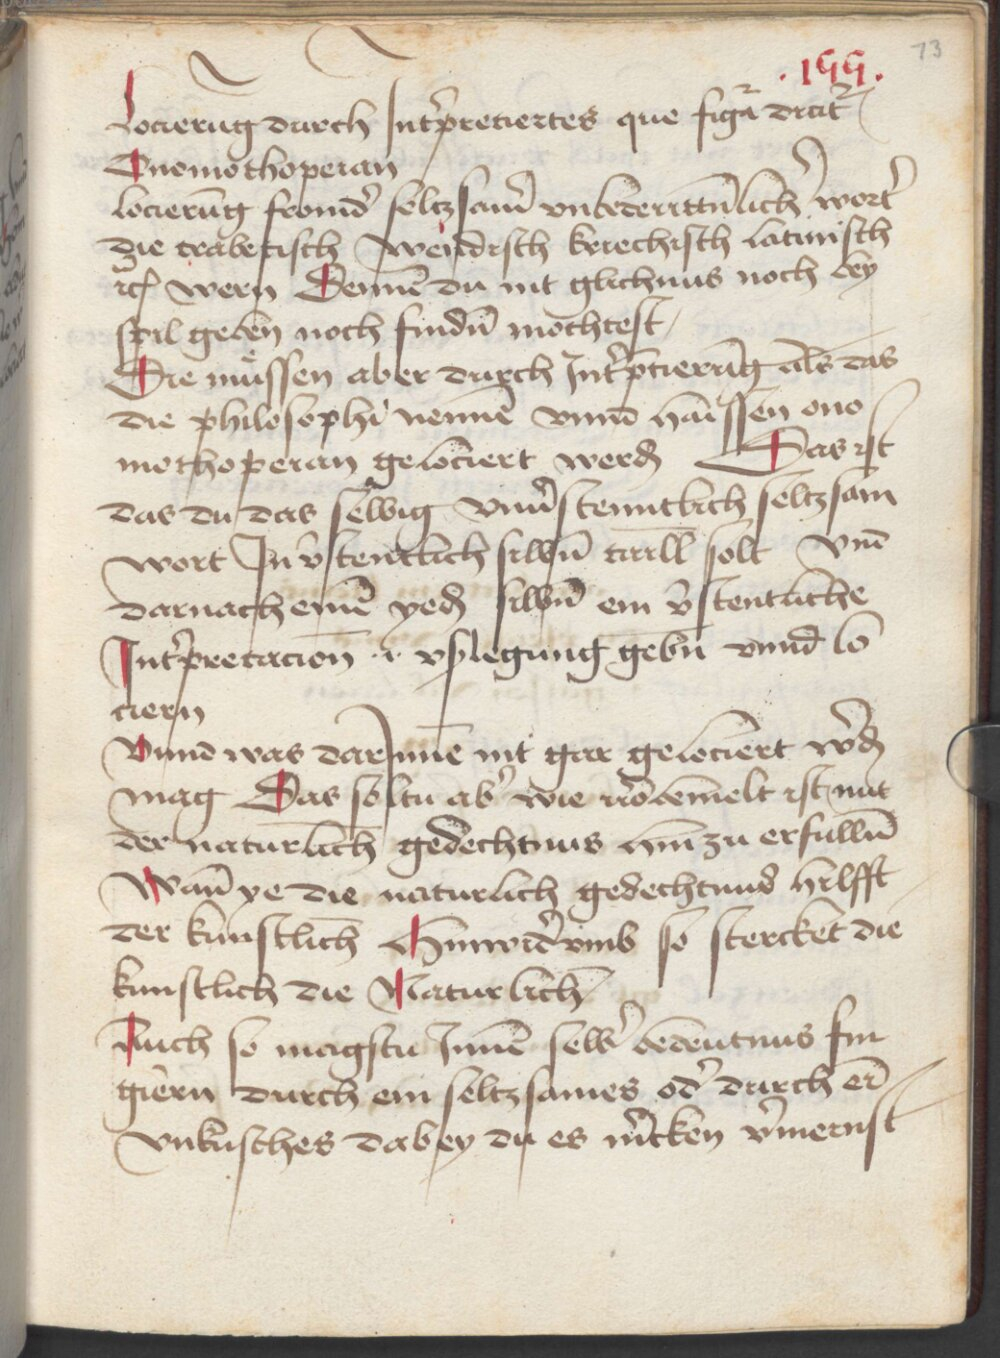 73
.155.
Locierūg durch Int̉preciertes que figȓa dicit̉
Onomothoperan
locierūg fromd̉ seltzsam̄ vnbederittn̄lich̉ wort̉
die trabetisch wendisch kriechisch latinisch
rc̄ wern Dennē du nit glichnus noch bey
spil geben noch findn̄ mochtest /
Die müssen aber durch Int̉p̉tierūg als das
die philosophi nennē vnnd haissen ono
mothoperan gelociert werdn̄ Das ist
das du das selbig vnủstenntlich seltzsam
wort In v̉stentlich silbn̄ taill solt Vnd
darnach einē yedn̄ silbn̄ ein v̉stentliche
Int̉pretacion .i. vslegung gebn̄ vnnd lo
ciern
Vnnd was darInnē nit gar gelociert w̉dn̄
mag Das soltu ab̉ wie vorgemelt ist mit
der naturlich gedechtnus hin zu erfulln̄
Wan̄ ye die naturlich gedechtnuß hilfft
der kunstlich Hinwid̉vmb so stercket die
kunstlich die Naturlich
Auch so magstu Innē selb̉ bedeutnus fin
giern durch ein seltzsames od̉ durch ein
vnkusches dabey du es m̉cken v̉meinst